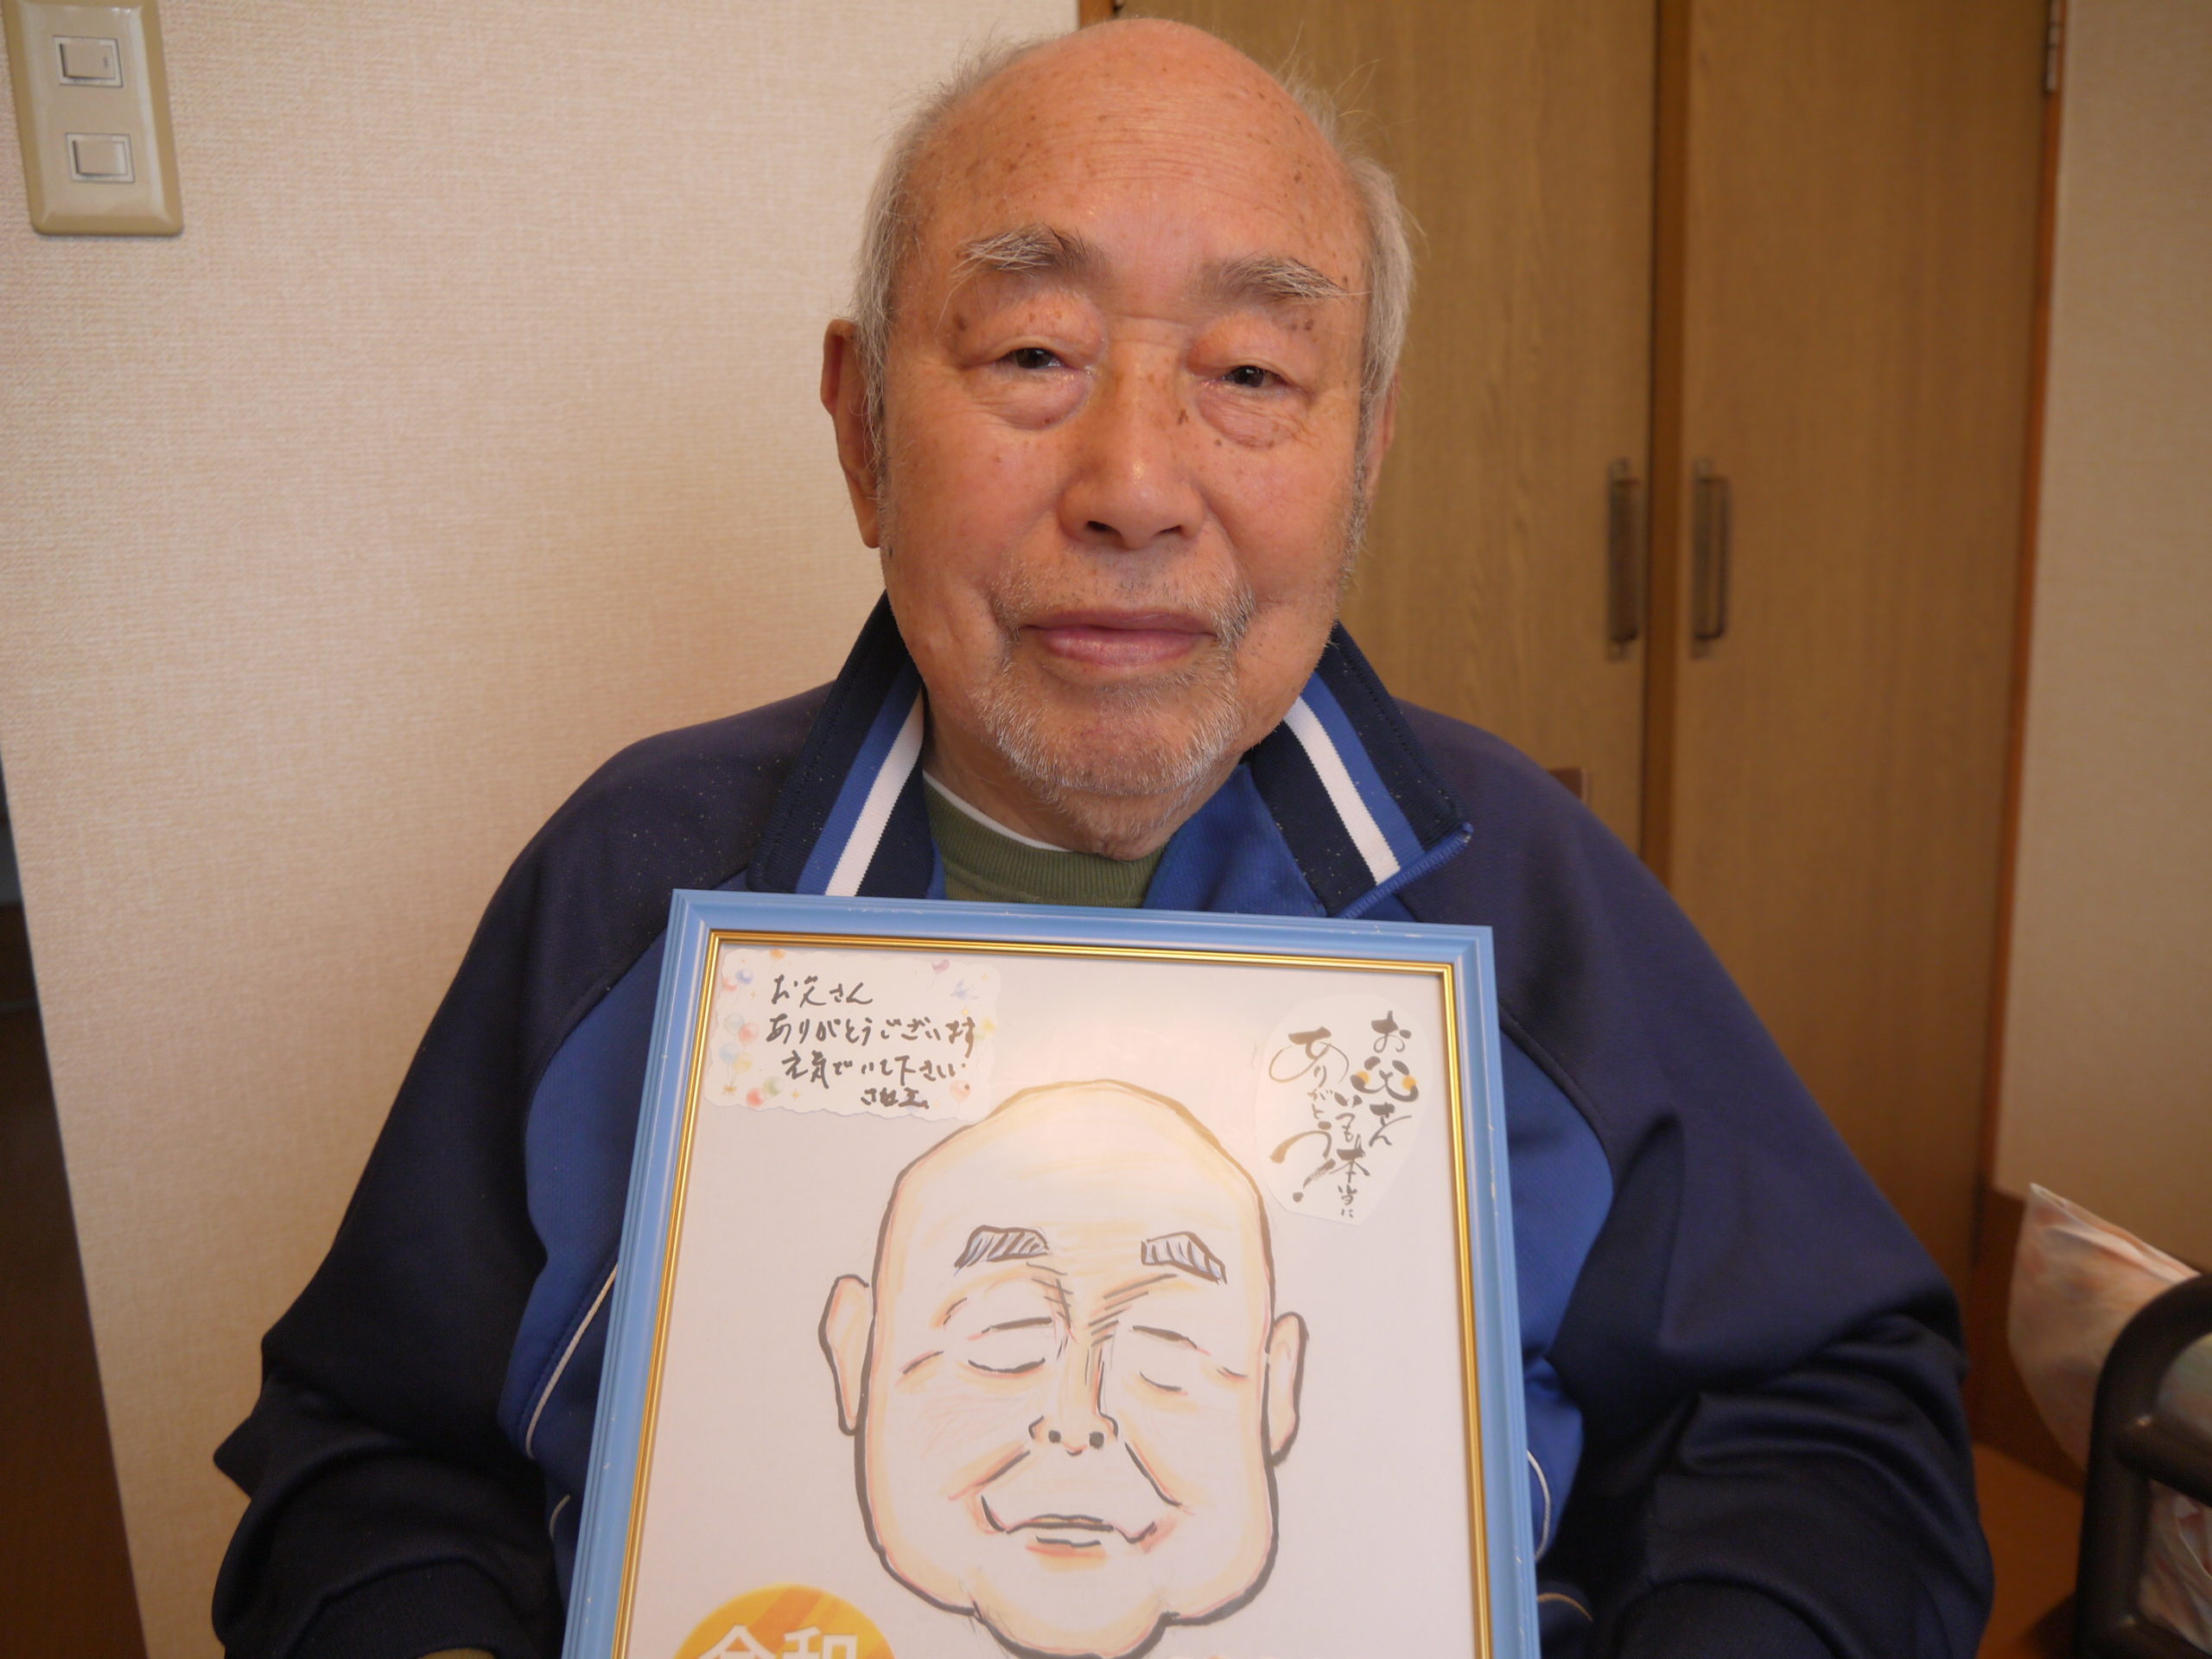 お父さん
ありがとうございます
元気でいて下さい
お父さん
いつも本当に
ありがとう!
令和